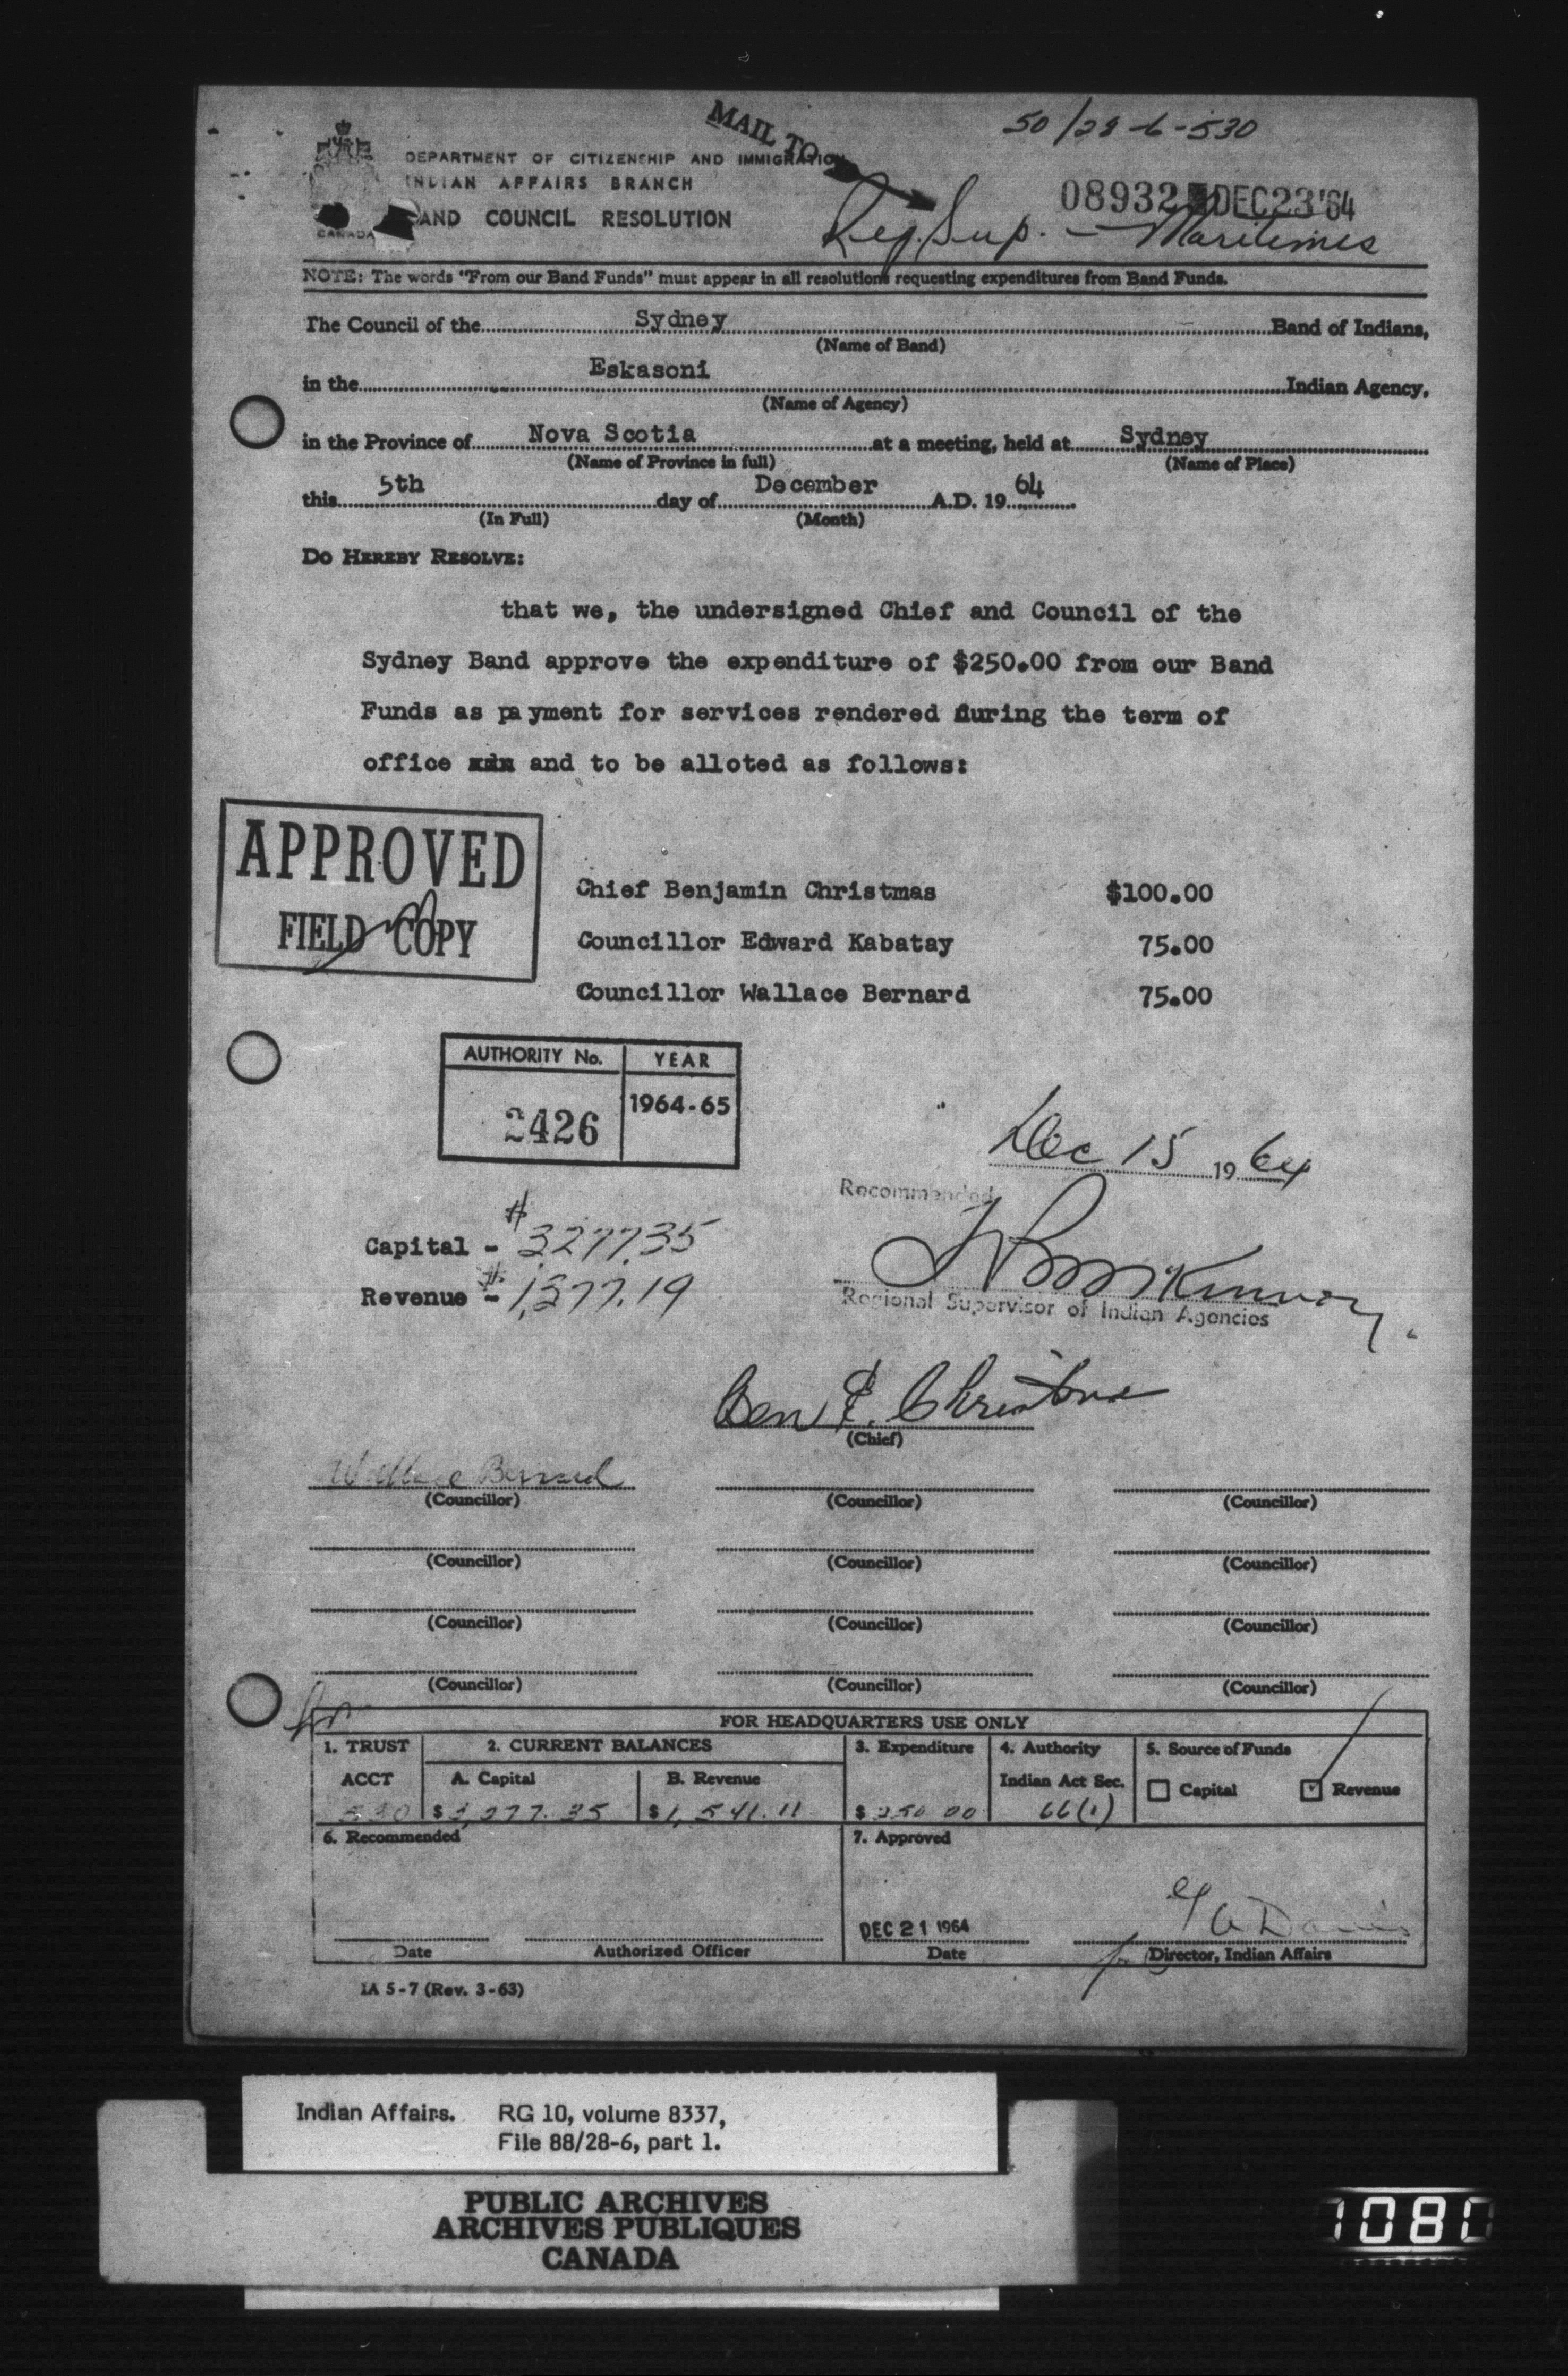 MAIL TO
50/28-6-530
DEPARTMENT OF CITIZENSHIP AND IMMIGRATION
INDIAN AFFAIRS BRANCH
AND COUNCIL RESOLUTION
CANADA
08932 DEC 23 '64
Reg. Sup. - Maritimes
NOTE: The words "From our Band Funds" must appear in all resolutions requesting expenditures from Band Funds.
The Council of the Sydney Band of Indians,
(Name of Band)
in the Eskasoni Indian Agency,
(Name of Agency)
in the Province of Nova Scotia at a meeting, held at Sydney
(Name of Province in full) (Name of Place)
this 5th day of December A.D. 19 64
(In Full) (Month)
DO HEREBY RESOLVE:
that we, the undersigned Chief and Council of the
Sydney Band approve the expenditure of $250.00 from our Band
Funds as payment for services rendered during the term of
office and to be alloted as follows:
APPROVED
FIELD COPY
Chief Benjamin Christmas $100.00
Councillor Edward Kabatay 75.00
Councillor Wallace Bernard 75.00
AUTHORITY No. YEAR
2426 1964-65
Dec 15 19 64
Recommended
Capital - $3277.35
Revenue - $1,377.19
Regional Supervisor of Indian Agencies
Ben E. Christmas
(Chief)
Wallace Bernard
(Councillor) (Councillor) (Councillor)
(Councillor) (Councillor) (Councillor)
(Councillor) (Councillor) (Councillor)
(Councillor) (Councillor) (Councillor)
FOR HEADQUARTERS USE ONLY
1. TRUST 2. CURRENT BALANCES 3. Expenditure 4. Authority 5. Source of Funds
ACCT A. Capital B. Revenue Indian Act Sec. Capital Revenue
530 $3,277.35 $1,541.11 $250 00 66(1)
6. Recommended 7. Approved
DEC 21 1964
Date Authorized Officer Date for Director, Indian Affairs
IA 5-7 (Rev. 3-63)
Indian Affairs. RG 10, volume 8337,
File 88/28-6, part 1.
PUBLIC ARCHIVES
ARCHIVES PUBLIQUES
CANADA
1080